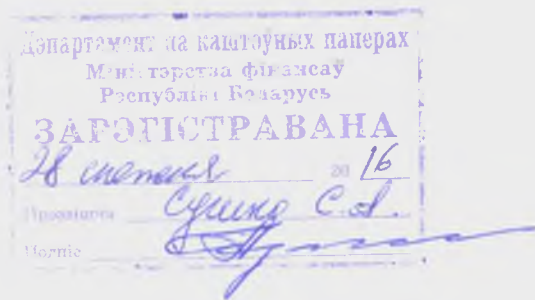 Дэпартамент па каштоўных паперах
Міністэрства фінансаў
Рэспублікі Беларусь
ЗАРЭГІСТРАВАНА
28 снежня 20 16
Прозвішча Сушко С.А.
Подпіс